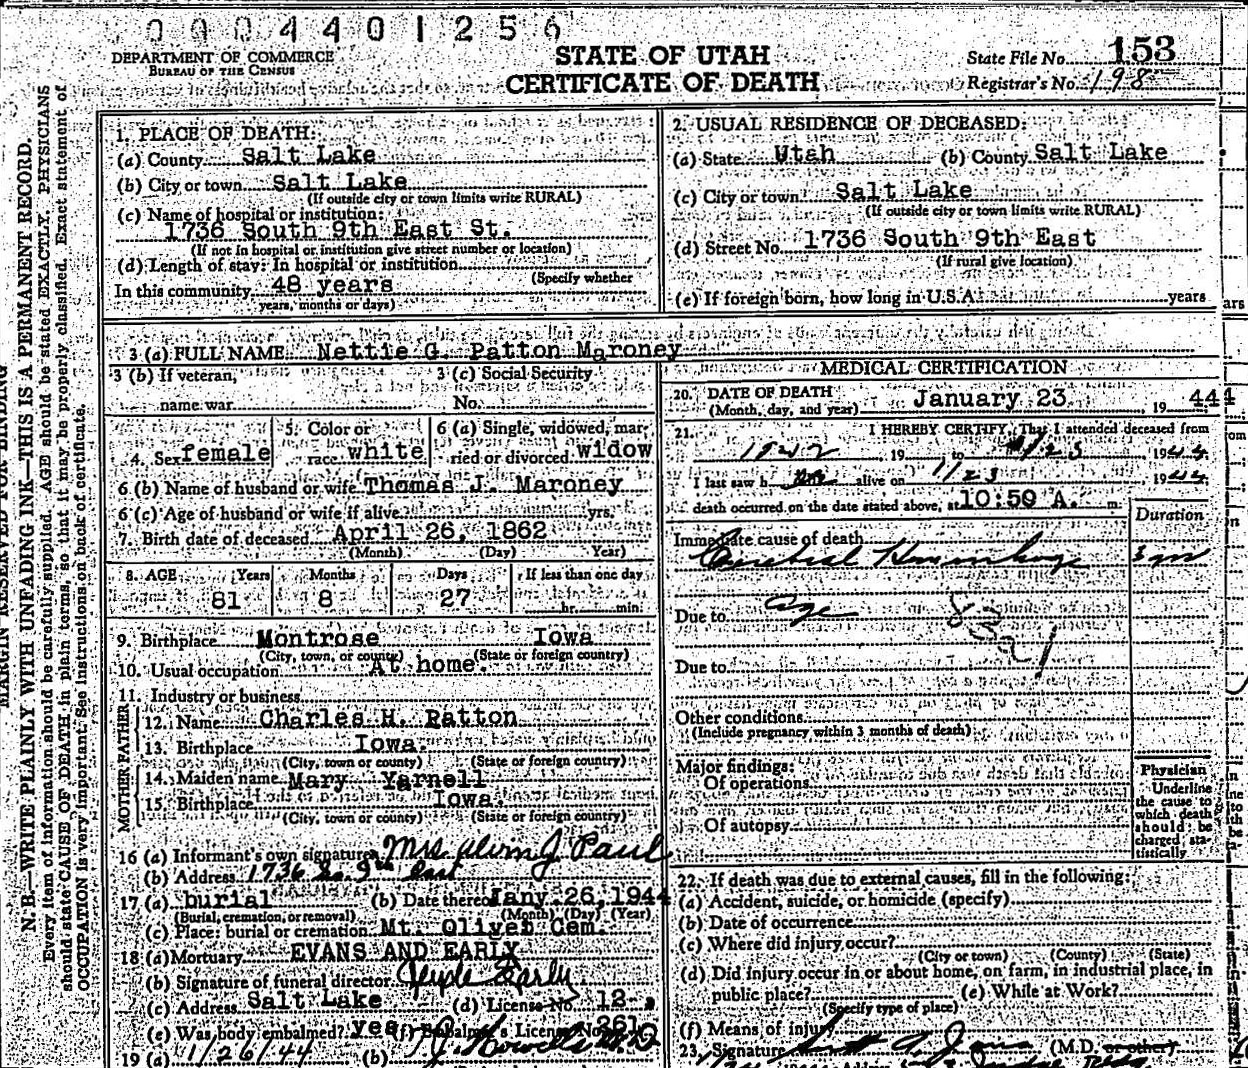 0004401256
DEPARTMENT OF COMMERCE
BUREAU OF THE CENSUS
STATE OF UTAH
CERTIFICATE OF DEATH
State File No. 153
Registrar's No. 198
MARGIN RESERVED FOR BINDING
N. B.—WRITE PLAINLY WITH UNFADING INK—THIS IS A PERMANENT RECORD.
Every item of information should be carefully supplied. AGE should be stated EXACTLY. PHYSICIANS
should state CAUSE OF DEATH in plain terms, so that it may be properly classified. Exact statement of
OCCUPATION is very important. See instructions on back of certificate.
1. PLACE OF DEATH:
(a) County Salt Lake
(b) City or town Salt Lake
(If outside city or town limits write RURAL)
(c) Name of hospital or institution:
1736 South 9th East St.
(If not in hospital or institution give street number or location)
(d) Length of stay: In hospital or institution
(Specify whether
In this community 48 years
years, months or days)
2. USUAL RESIDENCE OF DECEASED:
(a) State Utah (b) County Salt Lake
(c) City or town Salt Lake
(If outside city or town limits write RURAL)
(d) Street No. 1736 South 9th East
(If rural give location)
(e) If foreign born, how long in U.S.A. years
3 (a) FULL NAME Nettie G. Patton Maroney
3 (b) If veteran, 3 (c) Social Security
name war No.
4. Sex female 5. Color or race white 6 (a) Single, widowed, married or divorced widow
6 (b) Name of husband or wife Thomas J. Maroney
6 (c) Age of husband or wife if alive yrs.
7. Birth date of deceased April 26, 1862
(Month) (Day) Year)
8. AGE Years Months Days If less than one day
81 8 27 hr. min.
9. Birthplace Montrose Iowa
(City, town, or county) (State or foreign country)
10. Usual occupation At home.
11. Industry or business
FATHER
12. Name Charles H. Patton
13. Birthplace Iowa.
(City, town or county) (State or foreign country)
MOTHER
14. Maiden name Mary Yarnell
15. Birthplace Iowa.
(City, town or county) (State or foreign country)
16 (a) Informant's own signature Mrs. J. Paul
(b) Address 1736 So. 9th East
17 (a) burial (b) Date thereof Jany 26, 1944
(Burial, cremation, or removal) (Month) (Day) (Year)
(c) Place: burial or cremation Mt. Olivet Cem.
18 (a) Mortuary EVANS AND EARLY
(b) Signature of funeral director Early
(c) Address Salt Lake (d) License No. 12
(e) Was body embalmed? yes (f) Embalmer's License No. 261
19 (a) 1/26/44 (b) M.D
MEDICAL CERTIFICATION
20. DATE OF DEATH January 23 19 444
(Month, day, and year)
21. I HEREBY CERTIFY, That I attended deceased from
1942 19 to 1/23 1944
I last saw her alive on 1/23 1944
death occurred on the date stated above, at 10:50 A. m.
Duration
Immediate cause of death
Cerebral Hemorrhage
Due to age
Due to
Other conditions
(Include pregnancy within 3 months of death)
Major findings:
Of operations
Of autopsy
Physician
Underline
the cause to
which death
should be
charged sta-
tistically
22. If death was due to external causes, fill in the following:
(a) Accident, suicide, or homicide (specify)
(b) Date of occurrence
(c) Where did injury occur?
(City or town) (County) (State)
(d) Did injury occur in or about home, on farm, in industrial place, in
public place? (e) While at Work?
(Specify type of place)
(f) Means of injury
23. Signature (M.D. or other)